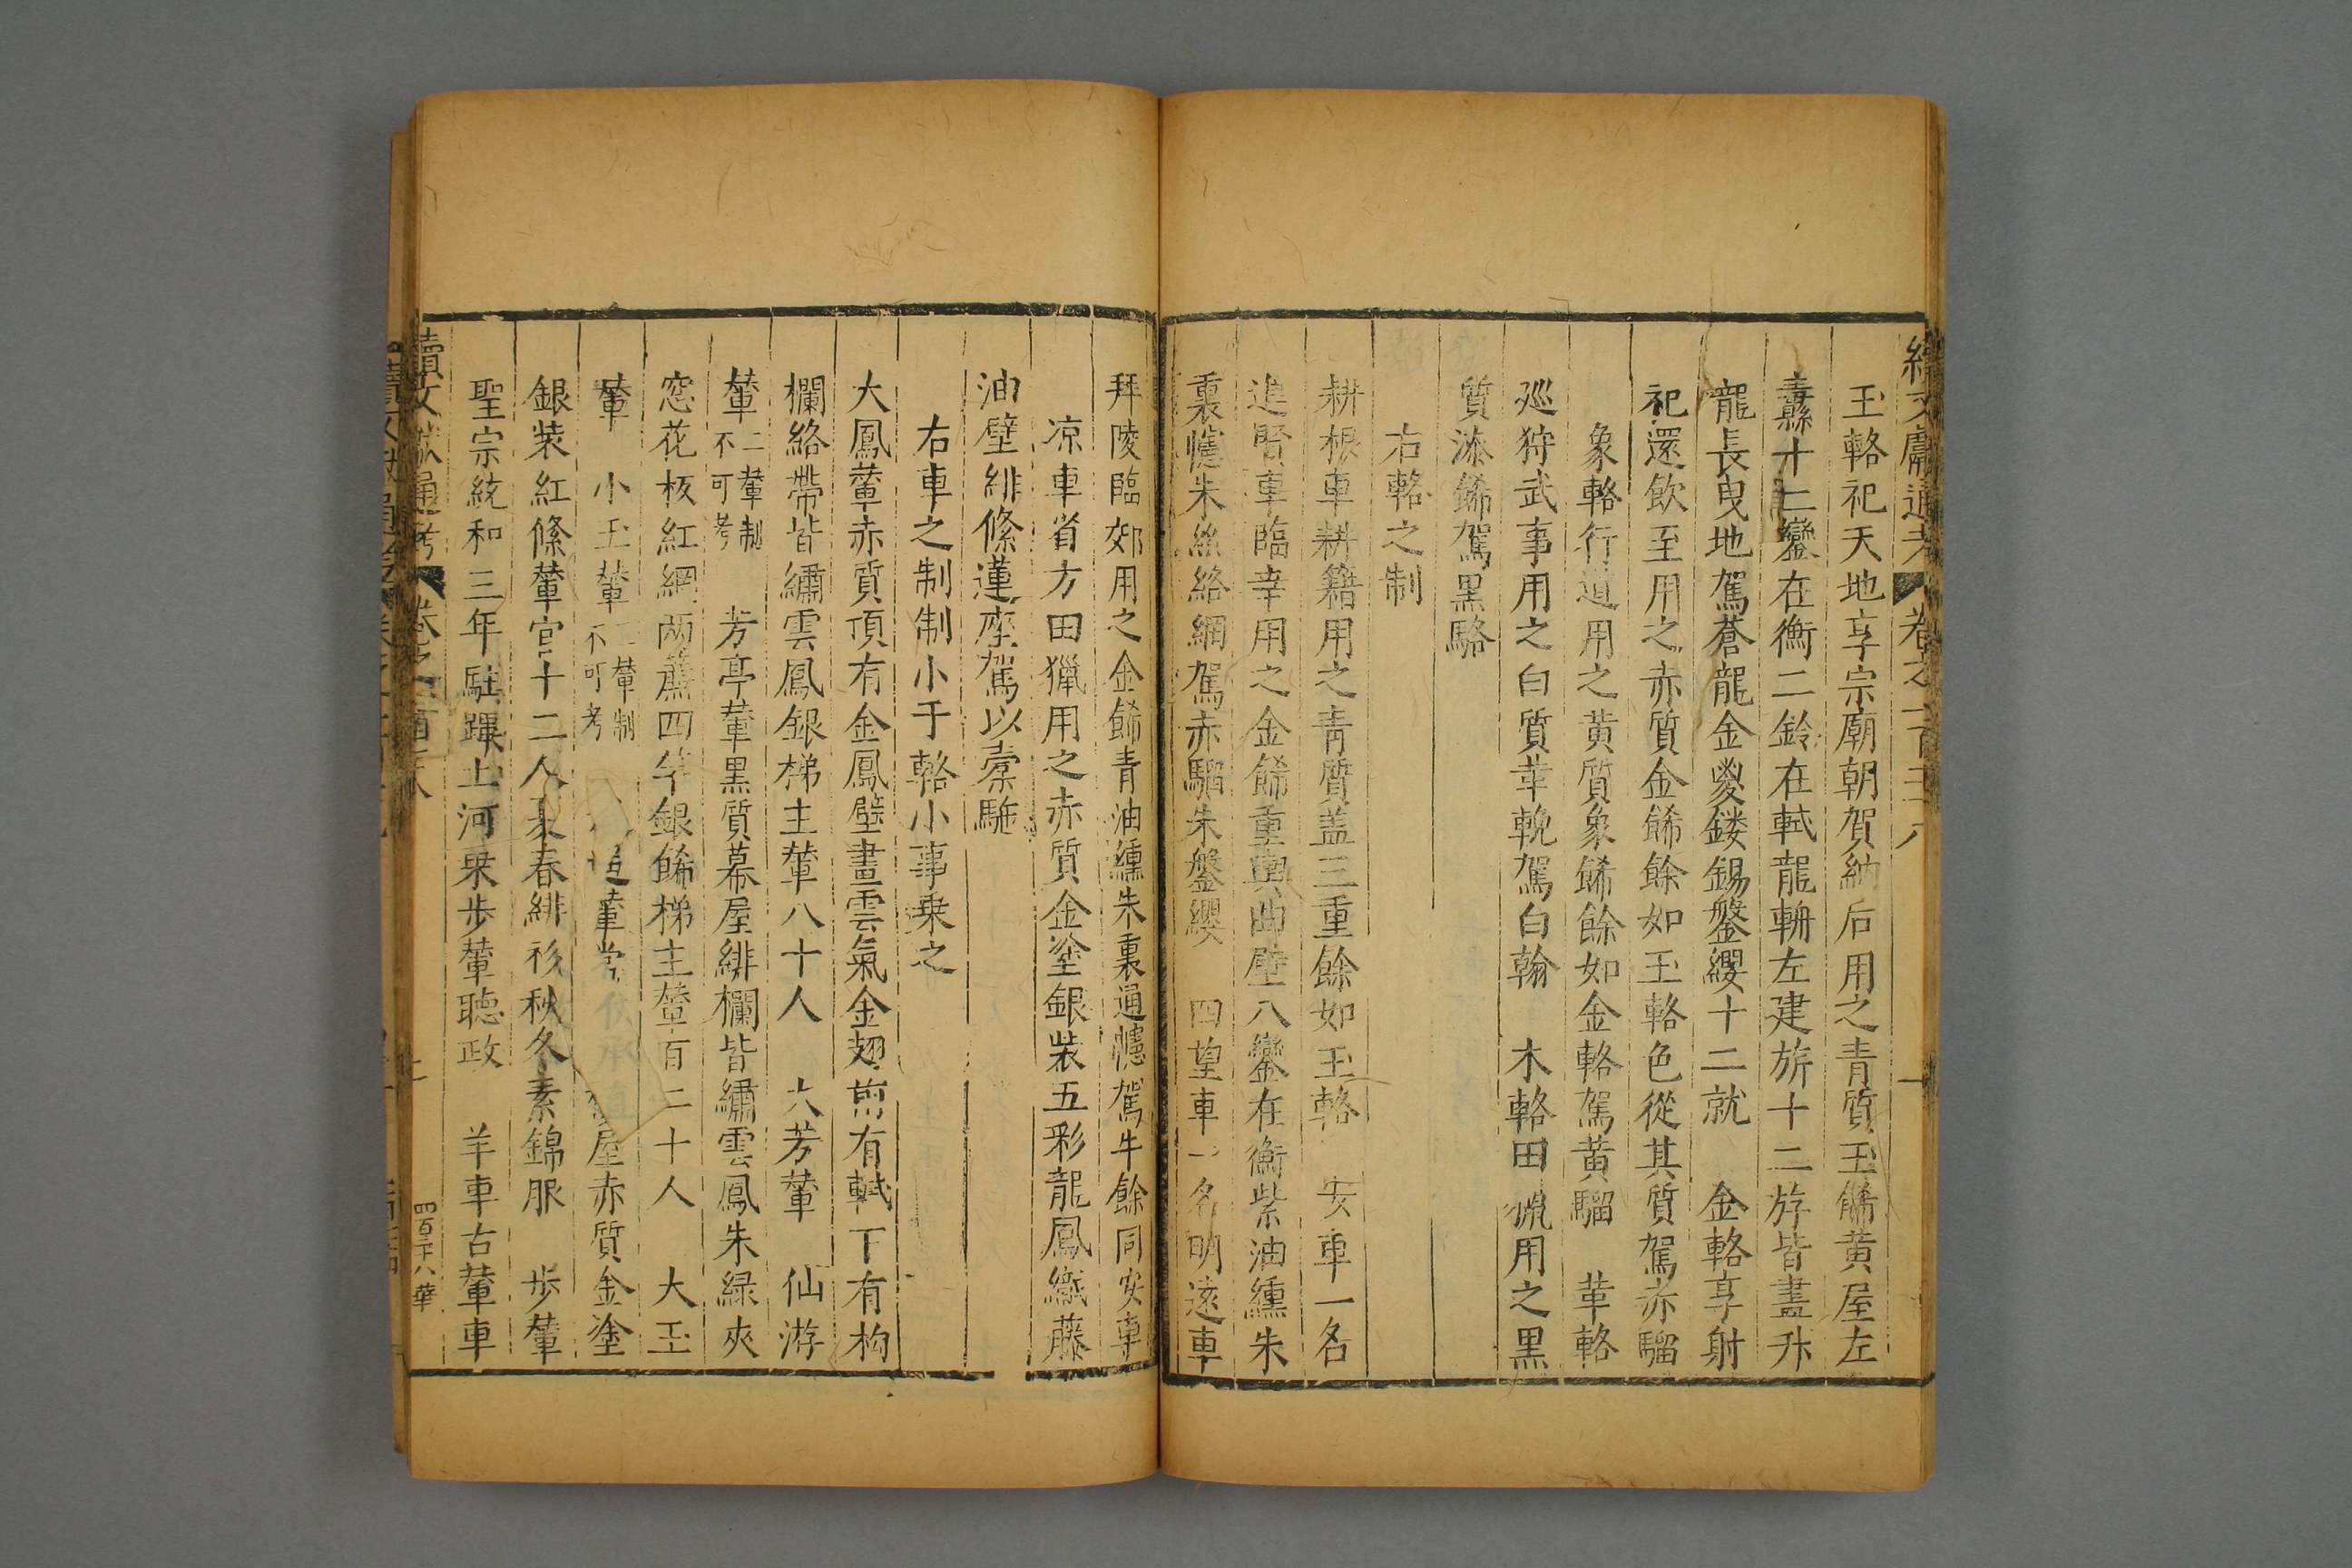 續文獻通考 卷之一百二十八
玉輅祀天地享宗廟朝賀納后用之青質玉餙黄屋左
纛十二鑾在衡二鈴在軾龍輈左建旂十二斿皆畫升
龍長曳地駕蒼龍金㚇鏤錫鞶纓十二就 金輅享射
祀還飲至用之赤質金餙餘如玉輅色從其質駕赤騮
象輅行道用之黄質象餙餘如金輅駕黄騮 革輅
巡狩武事用之白質革輓駕白翰 木輅田猟用之黒
質漆餙駕黒駱
右輅之制
耕根車耕籍用之青質蓋三重餘如玉輅 安車一名
進賢車臨幸用之金餙重輿曲壁八鑾在衡紫油纁朱
裏幰朱絲絡網駕赤騮朱鞶纓 四望車一名明遠車
拜陵臨郊用之金餙青油纁朱裏通幰駕牛餘同安車
凉車省方田獵用之赤質金塗銀裝五彩龍鳳織藤
油壁緋絛蓮座駕以槖駞
右車之制制小于輅小事乗之
大鳳輦赤質頂有金鳳壁畫雲氣金翅前有軾下有构
欄絡帶皆繡雲鳳銀梯主輦八十人 大芳輦 仙游
輦二輦制不可考 芳亭輦黒質幕屋緋欄皆繡雲鳳朱緑夾
窓花板紅網两簾四竿銀餙梯主輦百二十人 大玉
輦 小玉輦二輦制不可考 逍遥輦常 屋赤質金塗
銀装紅絛輦官十二人春緋衫秋冬素錦服 歩輦
聖宗統和三年駐蹕土河乗歩輦聴政 羊車古輦車
續文獻通考 卷之一百二十八
四百十八 華